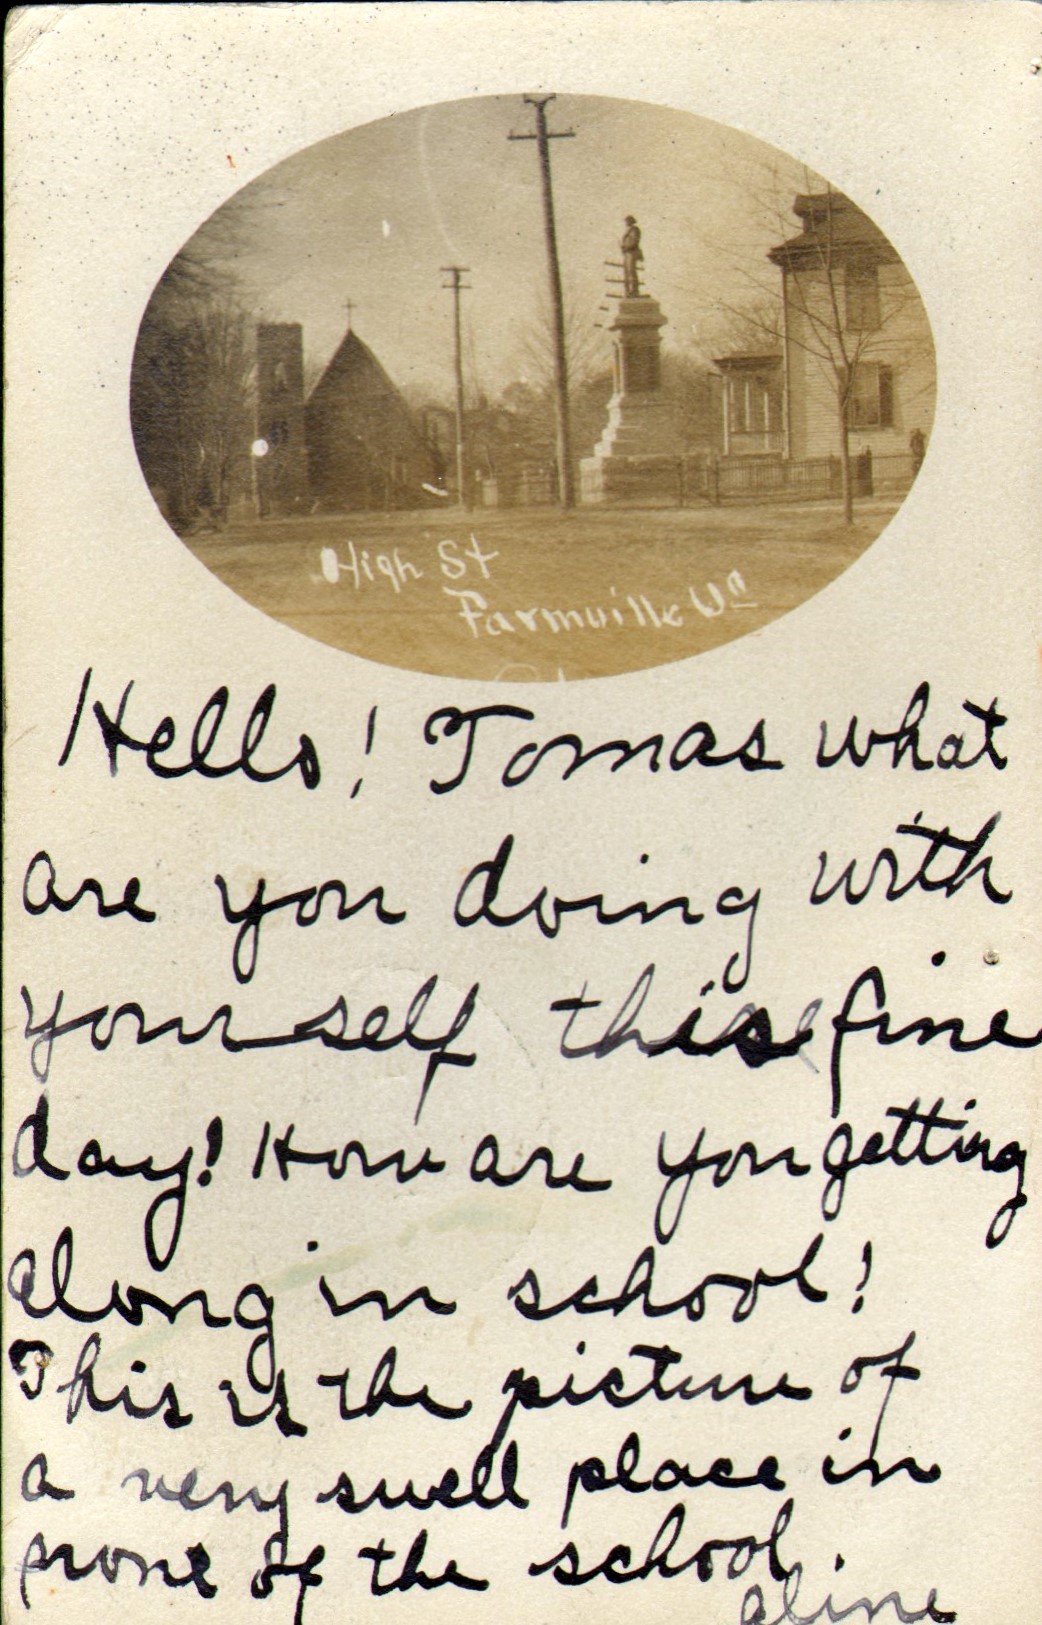 High St
Farmville Va
Hello! Tomas what
are you doing with
yourself this fine
day! How are you getting
along in school!
This is the picture of
a very swell place in
of the school.
Aline